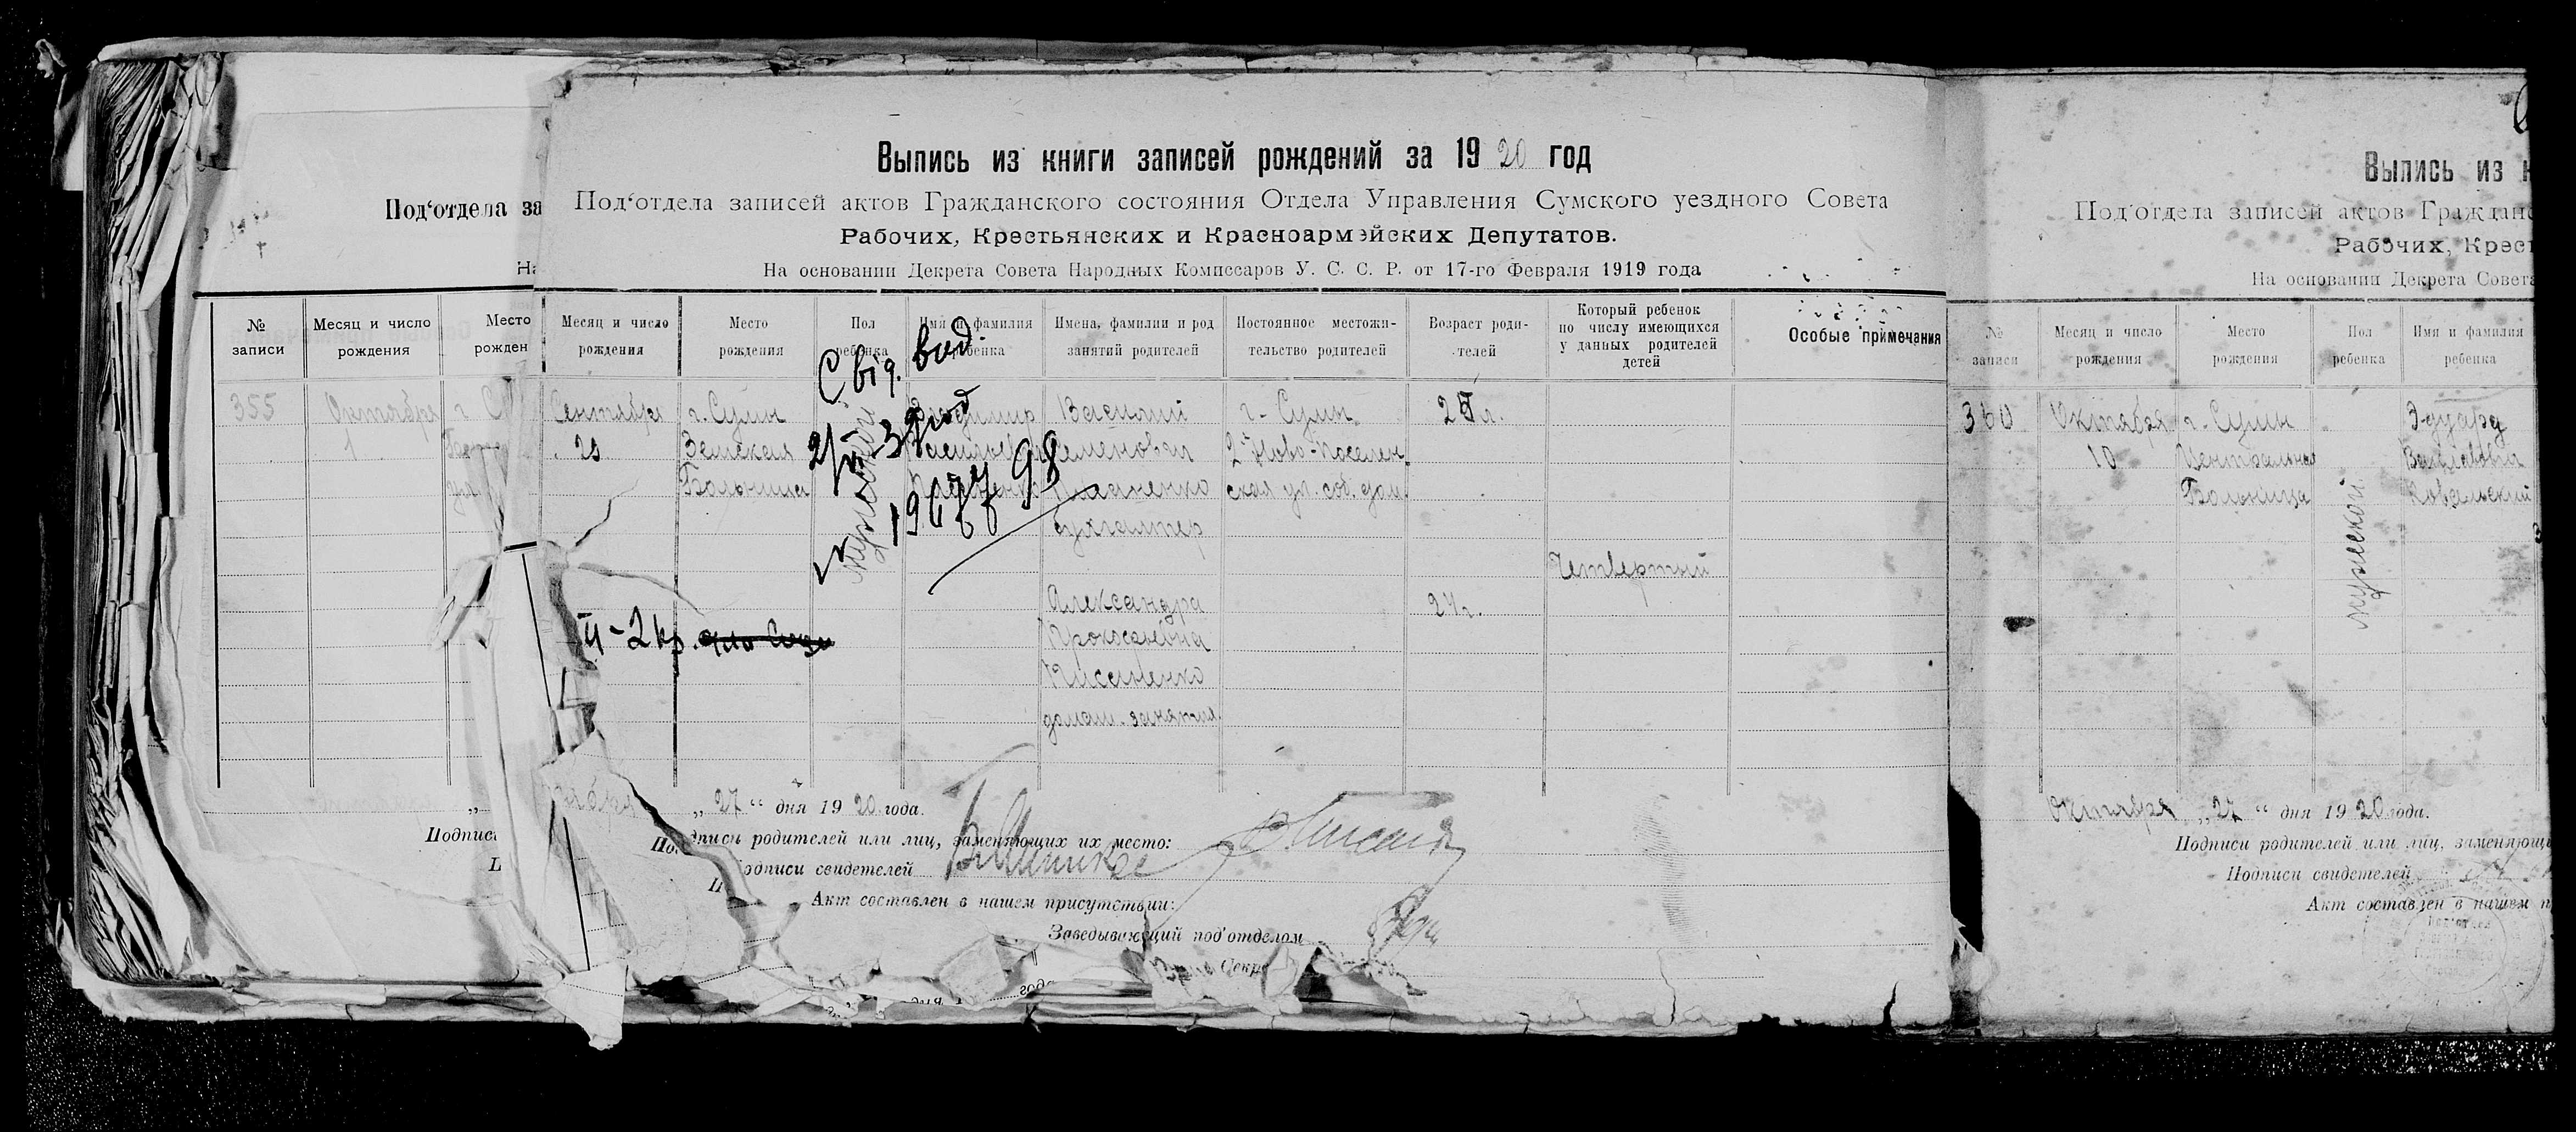 Под‘отдела за
На
№ записи
Месяц и число рождения
Место рожден
355
Октября
1
г. С
„
Подпис
Выпись из книги записей рождений за 1920 год
Под‘отдела записей актов Гражданского состояния Отдела Управления Сумского уездного Совета
Рабочих, Крестьянских и Красноармэйских Депутатов.
На основании Декрета Совета Народных Комиссаров У. С. С. Р. от 17-го Февраля 1919 года
Месяц и число рождения
Место рождения
Пол ребенка
Имя и фамилия ребенка
Имена, фамилии и род занятий родителей
Постоянное местожительство родителей
Возраст родителей
Который ребенок по числу имеющихся у данных родителей детей
Особые примечания
Сентября
20
г. Сумы
Земская
Больница
мужской
Владимир
Васильевич
Василий
Семенович
бухгалтер
Александра
Прокофьевна
Писаненко
домаш. занятия
г. Сумы
2 Ново-Поселен-
ская ул. соб. дом.
24г.
Четвертый
Свід. вид.
„ 27 “ дня 1920 года.
Подписи родителей или лиц, заменяющих их место:
Подписи свидетелей
Акт составлен в нашем присутствии:
Заведывающий под‘отделом
Секре
Выпись из к
Под‘отдела записей актов Гражданс
Рабочих, Крест
На основании Декрета Совета
№ записи
Месяц и число рождения
Место рождения
Пол ребенка
Имя и фамилия ребенка
360
Октября
10
г. Сумы
Центральная
Больница
мужской
Эдуард
Вацлавович
Ковальский
Октября „ 27 “ дня 1920 года.
Подписи родителей или лиц, заменяющи
Подписи свидетелей
Акт составлен в нашем п